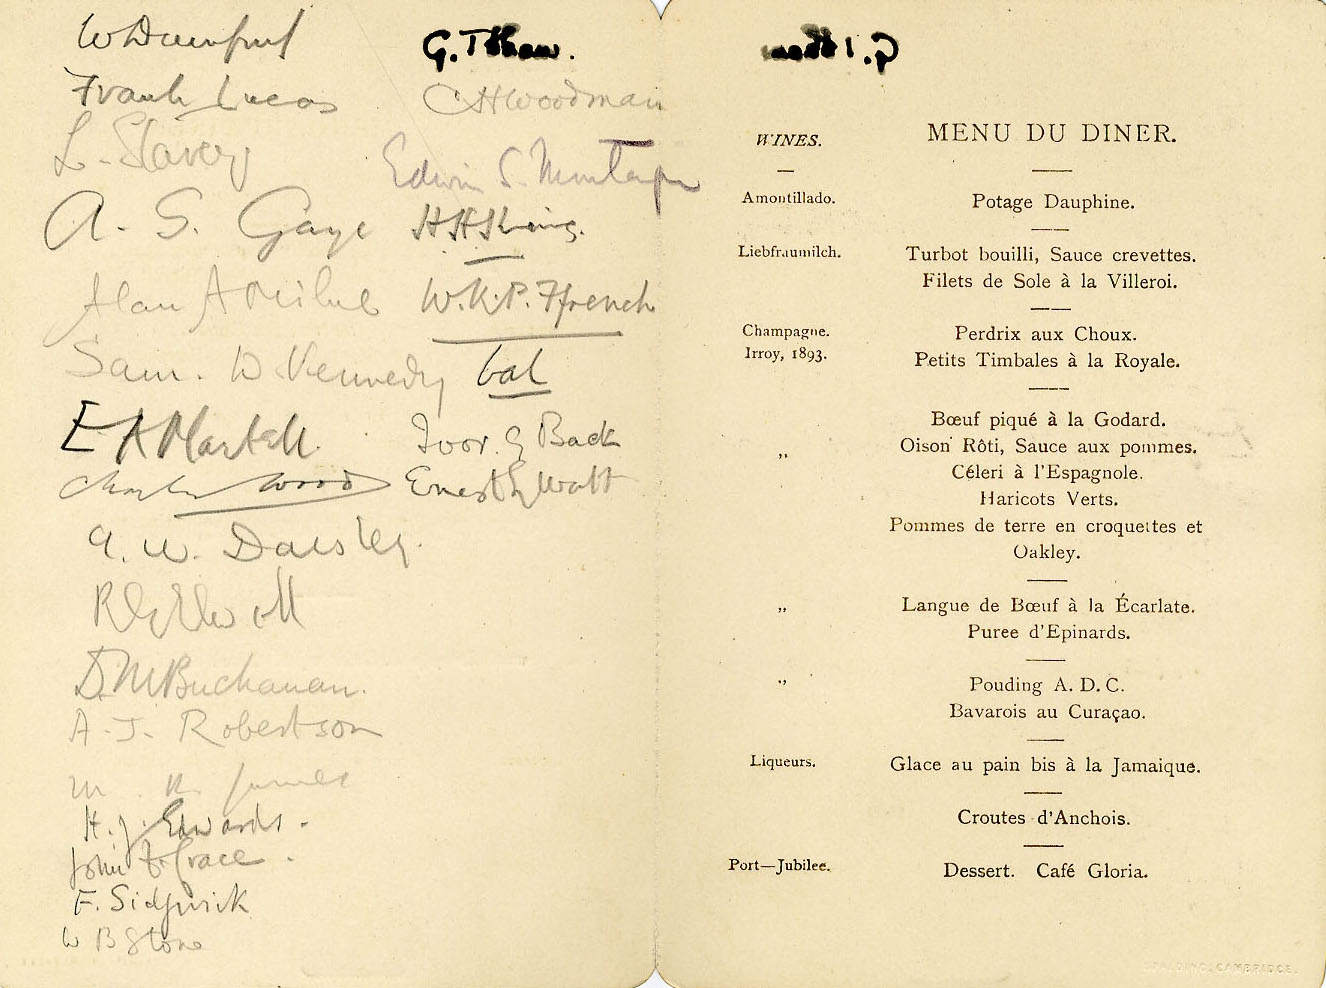 Frank Lucas
A. S. Gaye
Alan A Milne
Sam. W Kennedy
E A Martell.
Charles Wood
A. W. Dawsley.
D. M Buchanan.
A. J. Robertson
M. R. James
H. J. Edwards.
John F. Grace.
F. Sidgwick
W B Stone
G. T Shaw.
C H Woodman
Edwin S. Montagu
H H King.
W. K. P. Ffrench
Ivor. G Back
Ernest G Watt
MENU DU DINER.
WINES.
Amontillado.
Potage Dauphine.
Liebfraumilch.
Turbot bouilli, Sauce crevettes.
Filets de Sole à la Villeroi.
Champagne.
Irroy, 1893.
Perdrix aux Choux.
Petits Timbales à la Royale.
Bœuf piqué à la Godard.
,,
Oison Rôti, Sauce aux pommes.
Céleri à l'Espagnole.
Haricots Verts.
Pommes de terre en croquettes et
Oakley.
,,
Langue de Bœuf à la Écarlate.
Puree d'Epinards.
,,
Pouding A. D. C.
Bavarois au Curaçao.
Liqueurs.
Glace au pain bis à la Jamaique.
Croutes d'Anchois.
Port—Jubilee.
Dessert. Café Gloria.
SPALDING, CAMBRIDGE.